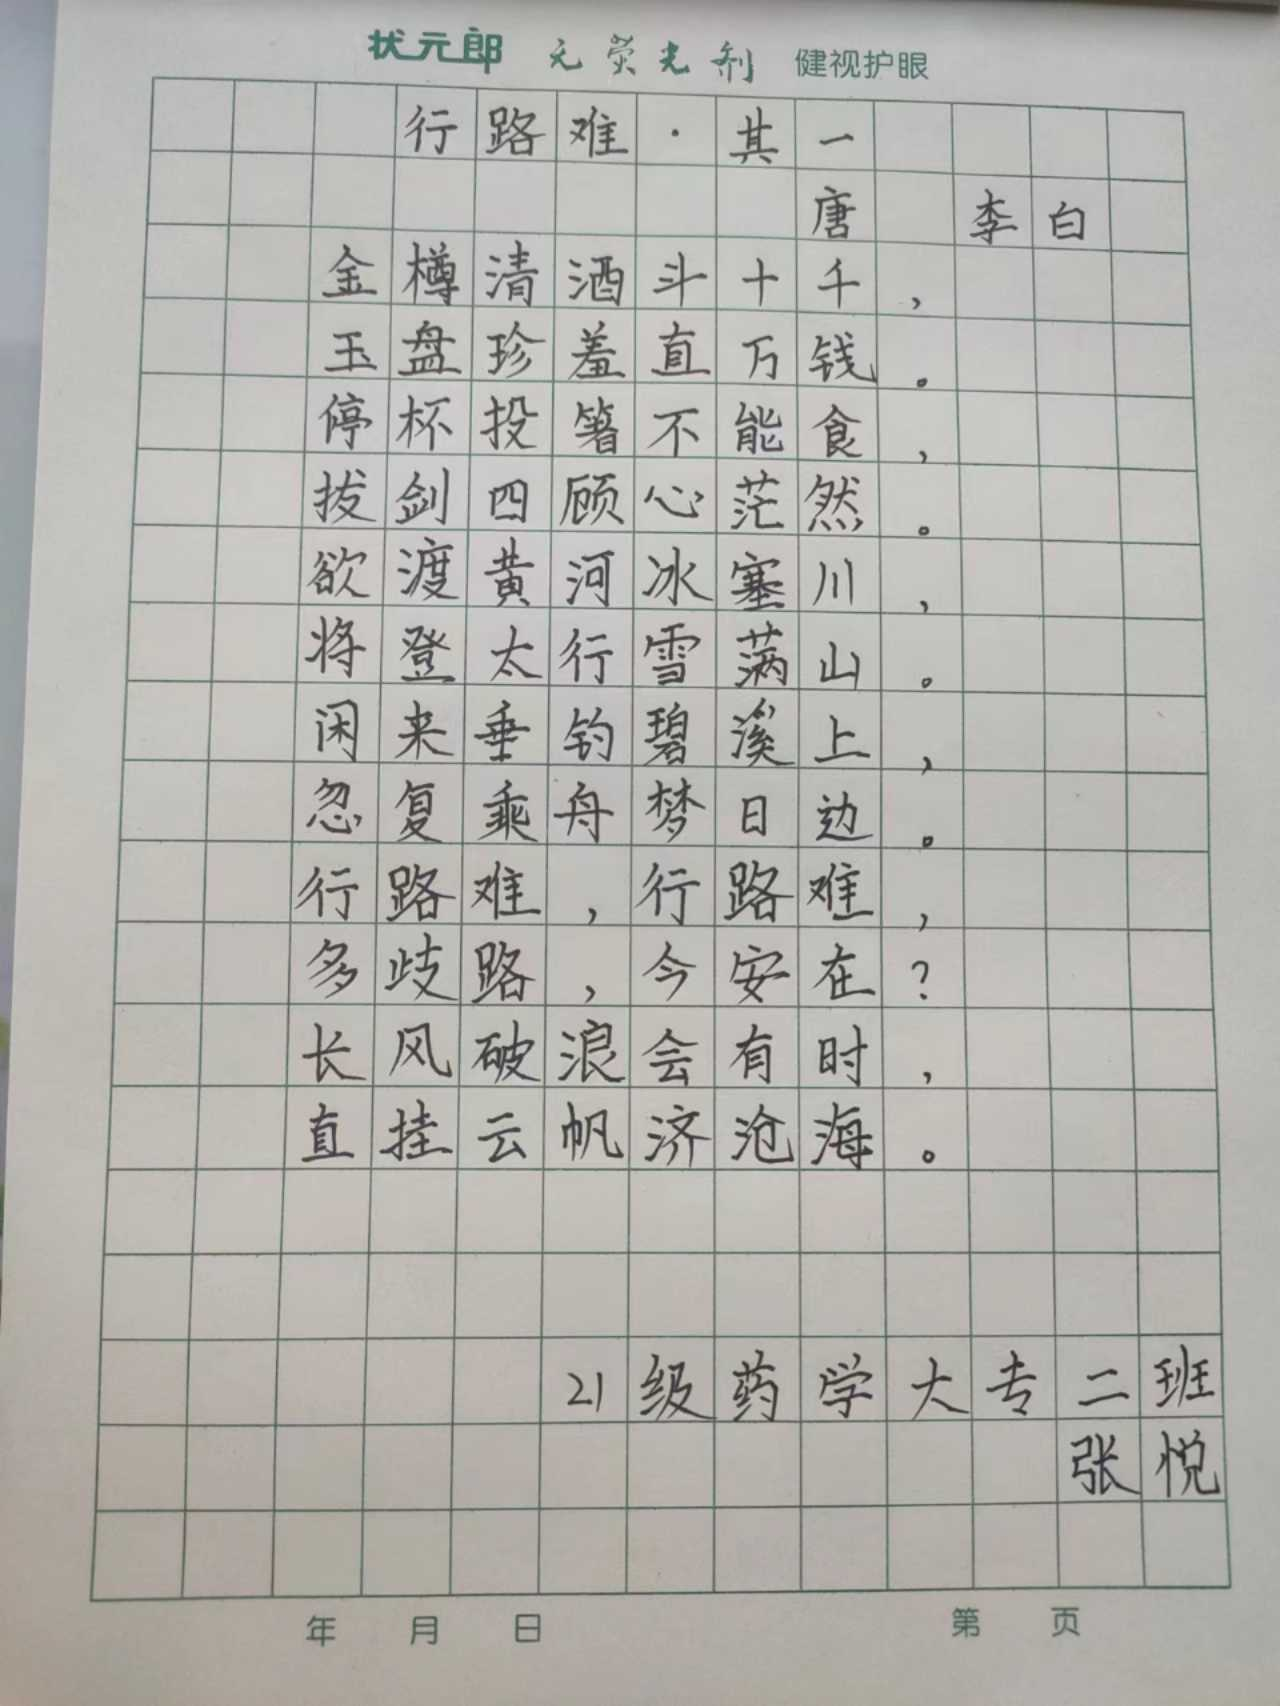 状元郎 无荧光剂 健视护眼
行路难·其一
唐 李白
金樽清酒斗十千，
玉盘珍羞直万钱。
停杯投箸不能食，
拔剑四顾心茫然。
欲渡黄河冰塞川，
将登太行雪满山。
闲来垂钓碧溪上，
忽复乘舟梦日边。
行路难，行路难，
多歧路，今安在？
长风破浪会有时，
直挂云帆济沧海。
21级药学大专二班
张悦
年 月 日 第 页